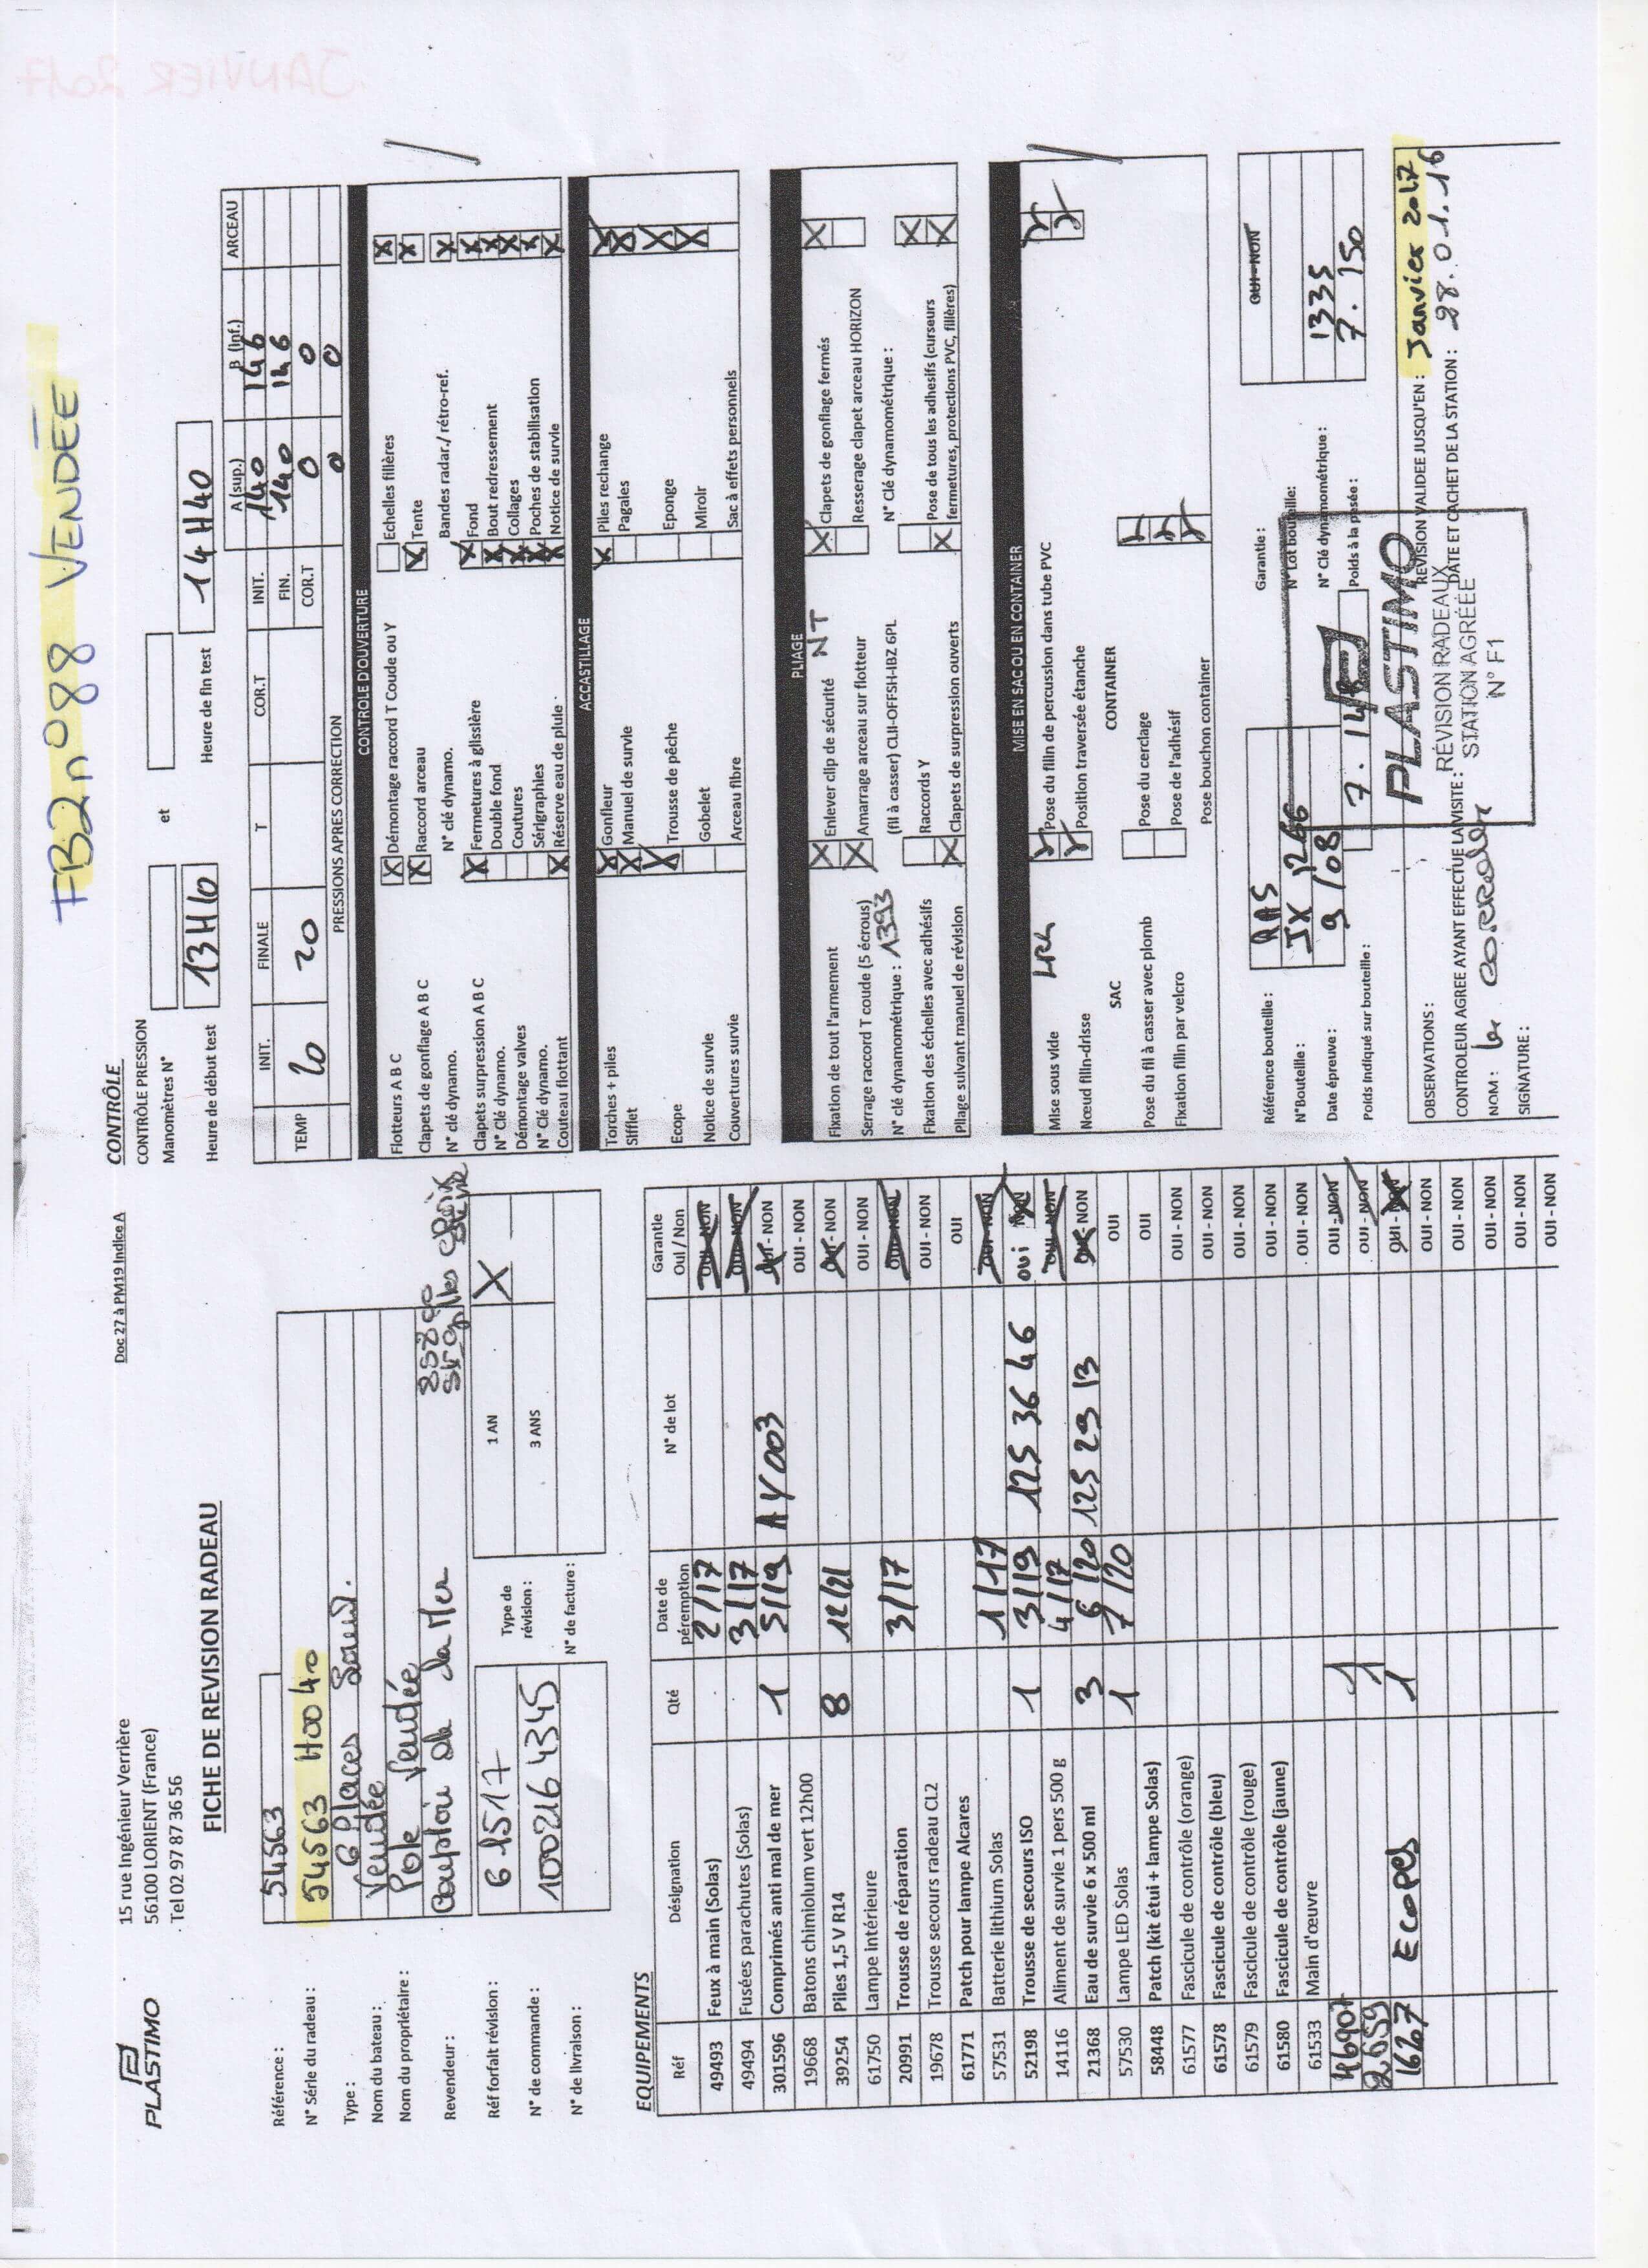 FB2 n°88 VENDÉE
JANVIER 2017
PLASTIMO
15 rue Ingénieur Verrière
56100 LORIENT (France)
Tel 02 97 87 36 56
Doc 27 à PM19 Indice A
FICHE DE REVISION RADEAU
Référence : 54563
N° Série du radeau : 54563 H0040
Type : 6 Places
Nom du bateau : Vendée
Nom du propriétaire : Pole Vendée
Revendeur : Comptoir de la Mer
Réf forfait révision : 61517
Type de révision :
1 AN X
3 ANS
N° de commande : 1002164345
N° de livraison :
N° de facture :
EQUIPEMENTS
Réf Désignation Qté Date de péremption N° de lot Garantie Oui / Non
49493 Feux à main (Solas) 2/17 OUI - NON
49494 Fusées parachutes (Solas) 3/17 OUI - NON
301596 Comprimés anti mal de mer 1 5/19 AY003 OUI - NON
19668 Batons chimiolum vert 12h00 OUI - NON
39254 Piles 1,5 V R14 8 12/21 OUI - NON
61750 Lampe intérieure OUI - NON
20991 Trousse de réparation 3/17 OUI - NON
19678 Trousse secours radeau CL2 OUI - NON
61771 Patch pour lampe Alcares OUI
57531 Batterie lithium Solas 1/17 OUI - NON
52198 Trousse de secours ISO 1 3/19 125 36 46 oui NON
14116 Aliment de survie 1 pers 500 g 4/17 OUI - NON
21368 Eau de survie 6 x 500 ml 3 6/20 125 29 13 OUI - NON
57530 Lampe LED Solas 1 7/20 OUI
58448 Patch (kit étui + lampe Solas) OUI
61577 Fascicule de contrôle (orange) OUI - NON
61578 Fascicule de contrôle (bleu) OUI - NON
61579 Fascicule de contrôle (rouge) OUI - NON
61580 Fascicule de contrôle (jaune) OUI - NON
61533 Main d'œuvre OUI - NON
1 OUI - NON
1 OUI - NON
16267 Ecopes 1 OUI - NON
OUI - NON
OUI - NON
OUI - NON
OUI - NON
OUI - NON
CONTRÔLE
CONTRÔLE PRESSION
Manomètres N° et
Heure de début test 13H10 Heure de fin test 14H40
INIT. FINALE T COR.T A (sup.) B (inf.) ARCEAU
TEMP 20 20
INIT. 140 146
FIN. 140 146
COR.T 0 0
PRESSIONS APRES CORRECTION 0 0
CONTROLE D'OUVERTURE
Flotteurs A B C X Démontage raccord T Coude ou Y Echelles filières X
Clapets de gonflage A B C X Raccord arceau X Tente X
N° clé dynamo. N° clé dynamo. Bandes radar./ rétro-ref. X
Clapets surpression A B C X Fermetures à glissière X Fond X
N° Clé dynamo. Double fond X Bout redressement X
Démontage valves Coutures X Collages X
N° Clé dynamo. Sérigraphies X Poches de stabilisation X
Couteau flottant X Réserve eau de pluie X Notice de survie X
ACCASTILLAGE
Torches + piles X Gonfleur X Piles rechange X
Sifflet X Manuel de survie Pagaies X
Ecope X Trousse de pêche Eponge X
Notice de survie Gobelet Miroir X
Couvertures survie Arceau fibre Sac à effets personnels
PLIAGE
Fixation de tout l'armement X Enlever clip de sécurité NT X Clapets de gonflage fermés X
Serrage raccord T coude (5 écrous) X Amarrage arceau sur flotteur Resserage clapet arceau HORIZON
N° clé dynamométrique : 1393 (fil à casser) CLII-OFFSH-IBZ 6PL N° Clé dynamométrique :
Fixation des échelles avec adhésifs Raccords Y Pose de tous les adhesifs (curseurs X
Pliage suivant manuel de révision X Clapets de surpression ouverts X fermetures, protections PVC, filières) X
MISE EN SAC OU EN CONTAINER
Mise sous vide Pose du fillin de percussion dans tube PVC
Nœud fillin-drisse Position traversée étanche
SAC CONTAINER
Pose du fil à casser avec plomb Pose du cerclage
Fixation fillin par velcro Pose de l'adhésif
Pose bouchon container
Référence bouteille : Garantie : OUI - NON
N°Bouteille : JX 1266 N° Lot bouteille:
Date épreuve : 9/08 N° Clé dynamométrique : 1335
Poids indiqué sur bouteille : Poids à la pesée : 7.150
OBSERVATIONS : REVISION VALIDEE JUSQU'EN : Janvier 2017
CONTROLEUR AGREE AYANT EFFECTUE LA VISITE : DATE ET CACHET DE LA STATION : 28.01.16
NOM :
SIGNATURE :
PLASTIMO
RÉVISION RADEAUX
STATION AGRÉÉE
N° F1